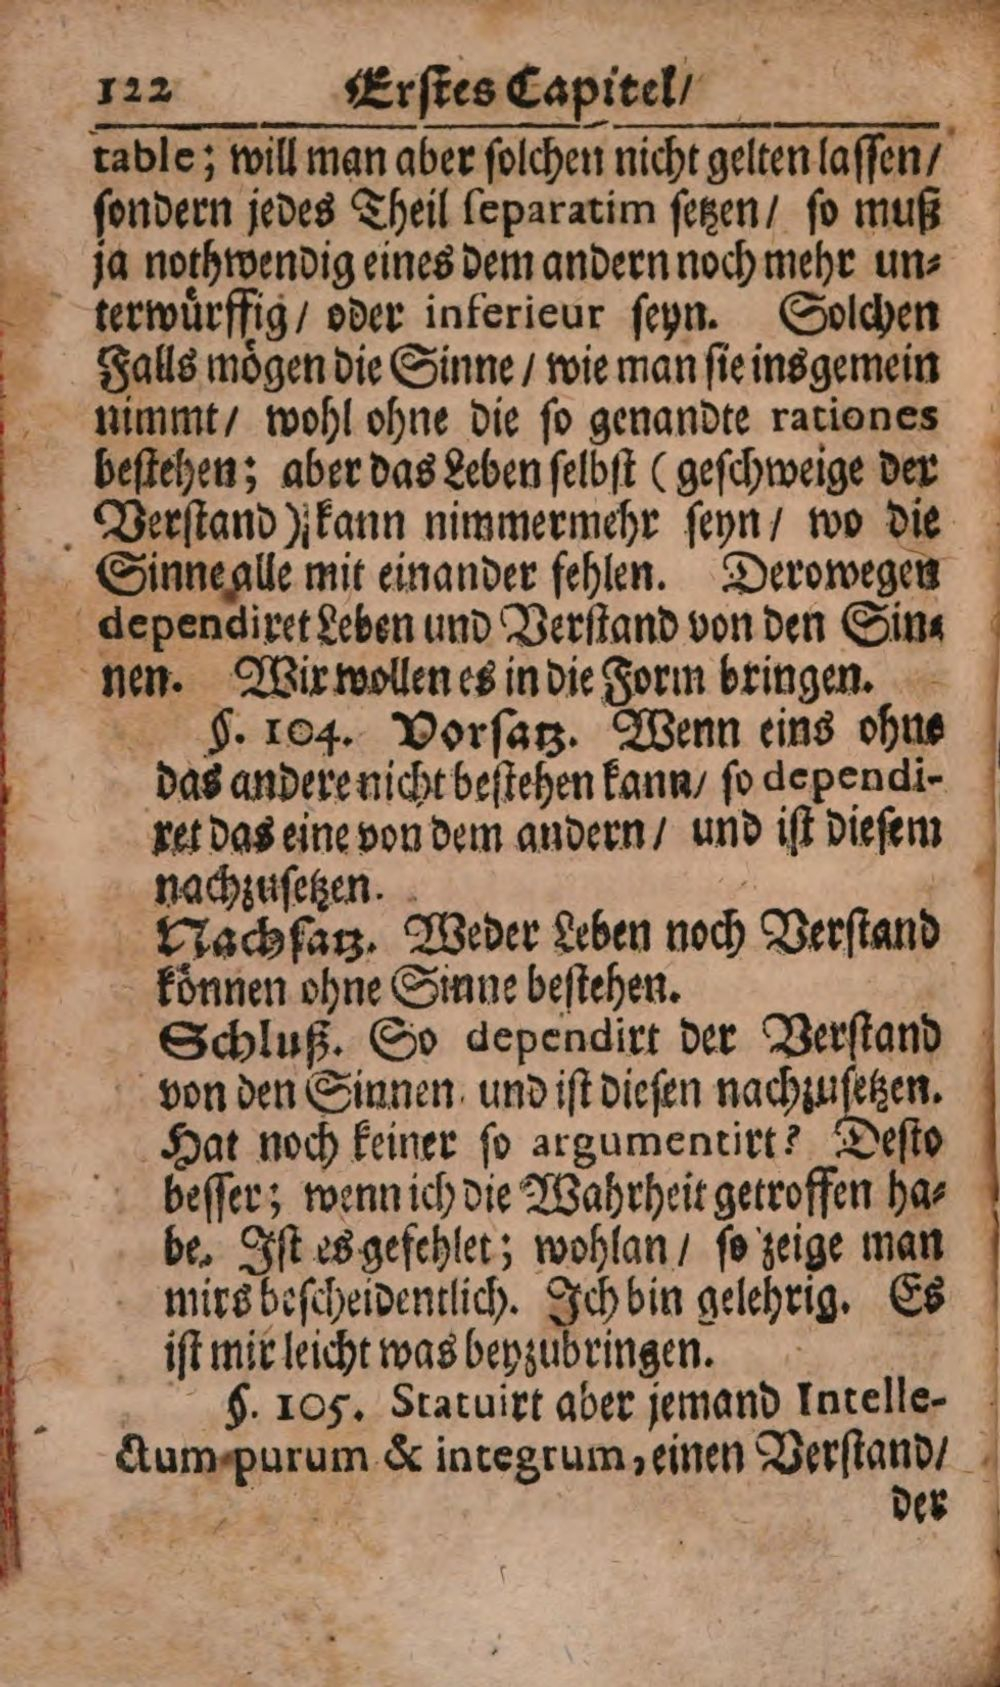 122 Erstes Capitel/
table; will man aber solchen nicht gelten lassen/
sondern jedes Theil separatim setzen/ so muß
ja nothwendig eines dem andern noch mehr un-
terwürffig/ oder inferieur seyn. Solchen
Falls mögen die Sinne/ wie man sie insgemein
nimmt/ wohl ohne die so genandte rationes
bestehen; aber das Leben selbst (geschweige der
Verstand) kann nimmermehr seyn/ wo die
Sinne alle mit einander fehlen. Derowegen
dependiret Leben und Verstand von den Sin-
nen. Wir wollen es in die Form bringen.
§. 104. Vorsatz. Wenn eins ohne
das andere nicht bestehen kann/ so dependi-
ret das eine von dem andern/ und ist diesem
nachzusetzen.
Nachsatz. Weder Leben noch Verstand
können ohne Sinne bestehen.
Schluß. So dependirt der Verstand
von den Sinnen und ist diesen nachzusetzen.
Hat noch keiner so argumentirt? Desto
besser; wenn ich die Wahrheit getroffen ha-
be. Ist es gefehlet; wohlan/ so zeige man
mirs bescheidentlich. Ich bin gelehrig. Es
ist mir leicht was beyzubringen.
§. 105. Statuirt aber jemand Intelle-
ctum purum & integrum, einen Verstand/
der